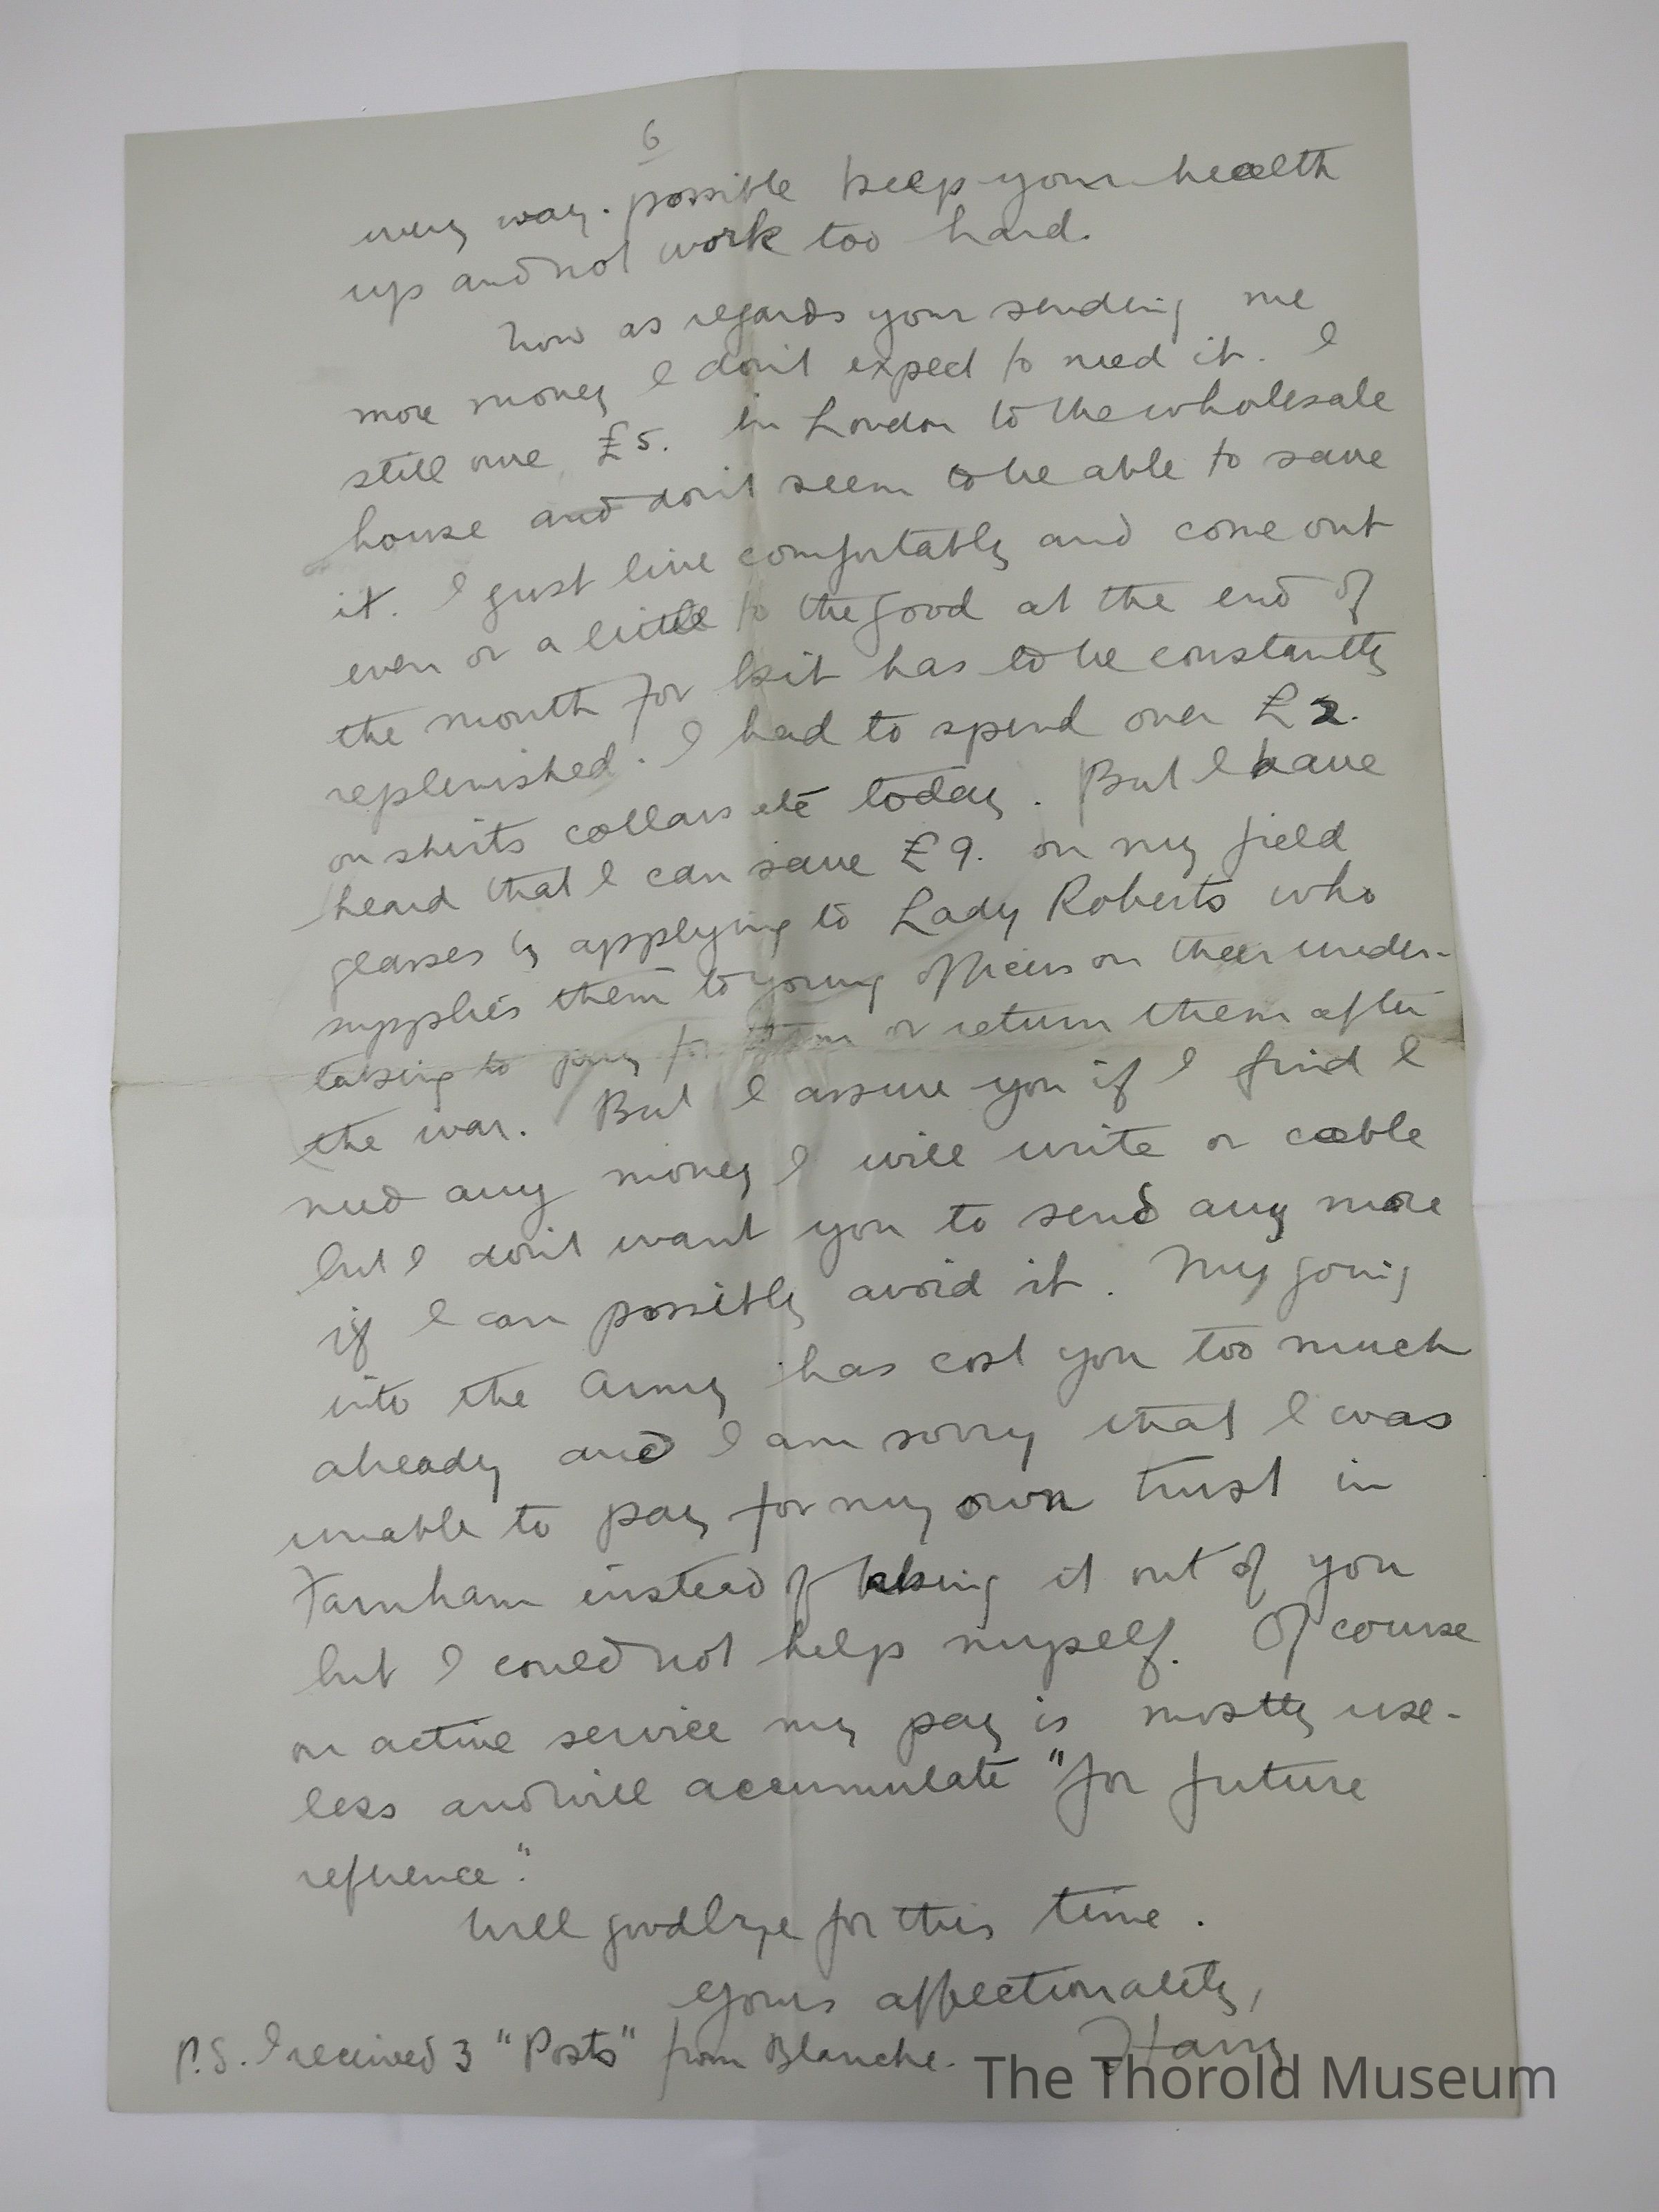 6
every way possible keep your health
up and not work too hard.
Now as regards your sending me
more money I don't expect to need it. I
still owe £5. in London to the wholesale
house and don't seem to be able to save
it. I just live comfortably and come out
even or a little to the good at the end of
the month for kit has to be constantly
replenished. I had to spend over £2.
on shirts collars etc today. But I have
heard that I can save £9. on my field
glasses by applying to Lady Roberts who
supplies them to young officers on their under-
taking to pay for them or return them after
the war. But I assure you if I find I
need any money I will write or cable
but I don't want you to send any more
if I can possibly avoid it. My going
into the Army has cost you too much
already and I am sorry that I was
unable to pay for my own trust in
Farnham instead of taking it out of you
but I could not help myself. Of course
on active service my pay is mostly use-
less and will accumulate "for future
reference".
Well goodbye for this time.
Yours affectionality,
Harry
P.S. I received 3 "Posts" from Blanche.
The Thorold Museum